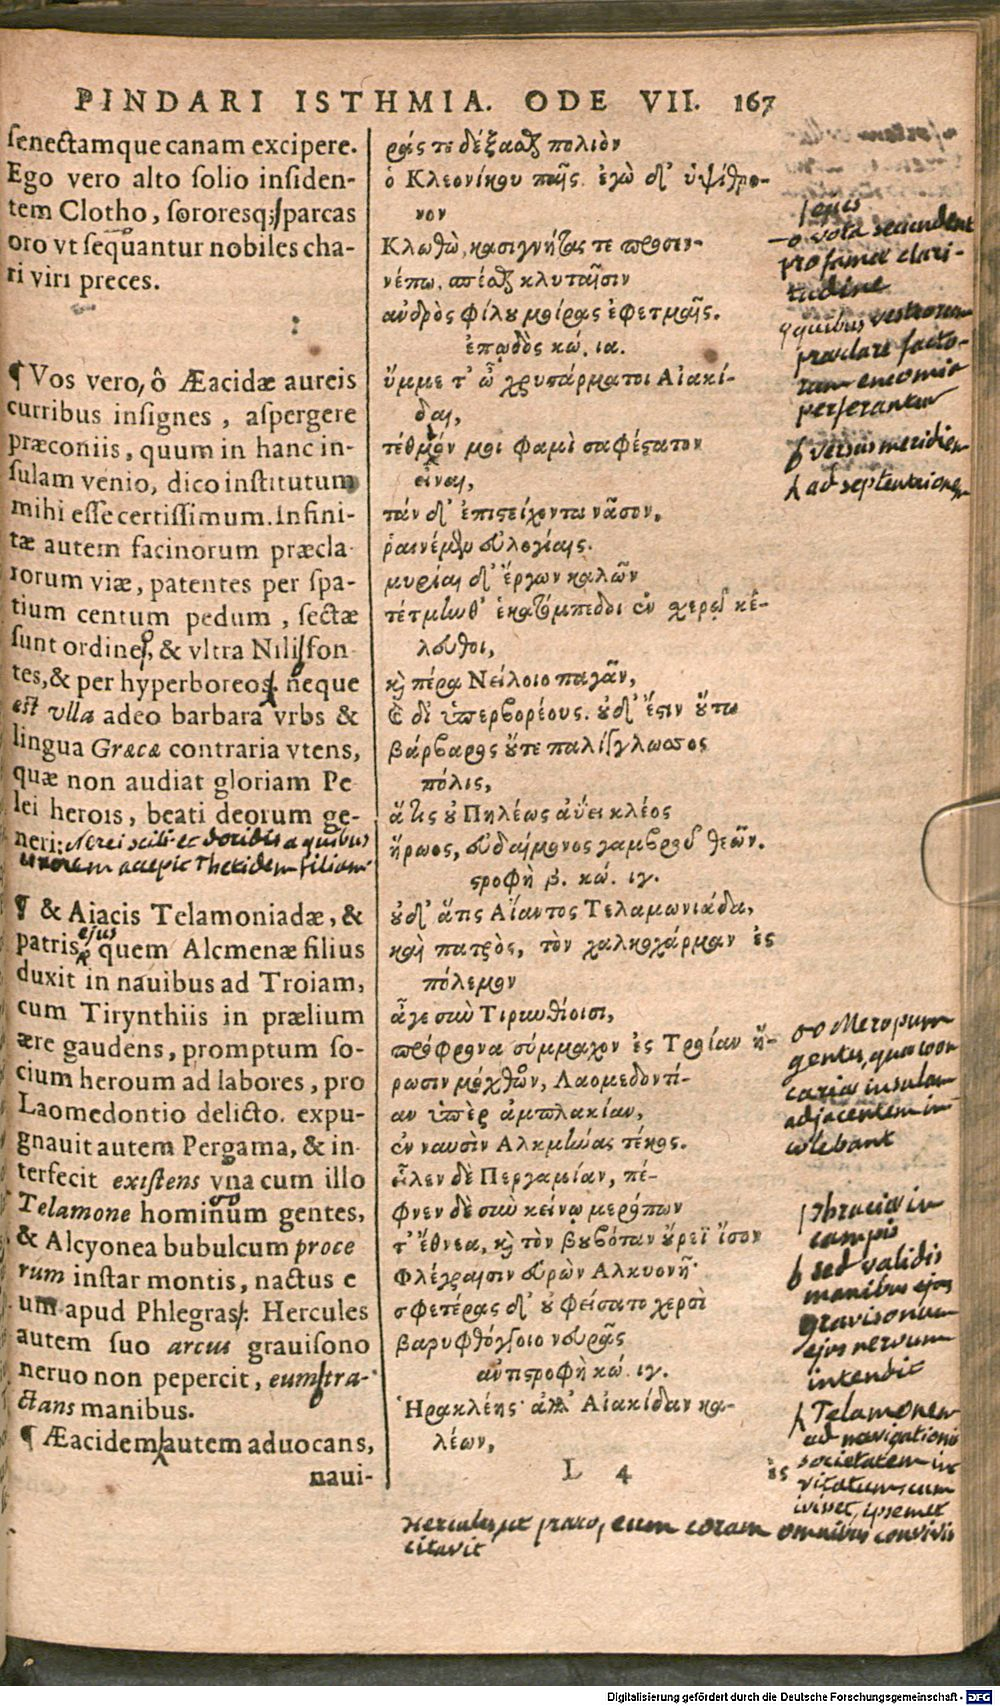 PINDARI ISTHMIA. ODE VII. 167
senectamque canam excipere.
Ego vero alto solio insiden-
tem Clotho, sororesq; parcas
oro vt sequantur nobiles cha-
ri viri preces.
¶ Vos vero, ô Æacidæ aureis
curribus insignes, aspergere
præconiis, quum in hanc in-
sulam venio, dico institutum
mihi esse certissimum. Infini-
tæ autem facinorum præcla-
rorum viæ, patentes per spa-
tium centum pedum, sectæ
sunt ordine, & vltra Nili fon-
tes, & per hyperboreos. neque
est vlla adeo barbara vrbs &
lingua Græca contraria vtens,
quæ non audiat gloriam Pe-
lei herois, beati deorum ge-
neri: Nerei scil. et Doridis a quibus
uxorem accepit Thetidem filiam
¶ & Aiacis Telamoniadæ, &
patris ejus quem Alcmenæ filius
duxit in nauibus ad Troiam,
cum Tirynthiis in prælium
ære gaudens, promptum so-
cium heroum ad labores, pro
Laomedontio delicto. expu-
gnauit autem Pergama, & in-
terfecit existens vna cum illo
Telamone hominum gentes,
& Alcyonea bubulcum proce
rum instar montis, nactus e
um apud Phlegras: Hercules
autem suo arcus grauisono
neruo non pepercit, eum tra-
ctans manibus.
¶ Æacidem autem aduocans,
naui-
ράς τε δέξασθαι πολιὸν
ὁ Κλεονίκου παῖς. ἐγὼ δ' ὑψίθρο-
νον
Κλωθὼ, κασιγνήτας τε προσεν-
νέπω, σπέσθαι κλυταῖσιν
ἀνδρὸς φίλου μοίρας ἐφετμαῖς.
ἐπῳδὸς κώ. ια.
ὔμμε τ' ὦ χρυσάρματοι Αἰακί-
δαι,
τέθμόν μοι φαμὶ σαφέστατον
εἶναι,
τάνδ' ἐπιστείχοντα νᾶσον,
ῥαινέμεν εὐλογίαις.
μυρίαι δ' ἔργων καλῶν
τέτμηνθ' ἑκατόμπεδοι ἐν χερσῷ κέ-
λευθοι,
καὶ πέρα Νείλοιο παγᾶν,
καὶ δι' ὑπερβορέους. οὐδ' ἔστιν οὕτω
βάρβαρος οὔτε παλίγγλωσσος
πόλις,
ἅτις οὐ Πηλέως ἀΐει κλέος
ἥρωος, εὐδαίμονος γαμβροῦ θεῶν.
στροφὴ β. κώ. ιγ.
οὐδ' ἅτις Αἴαντος Τελαμωνιάδα,
καὶ πατρὸς, τὸν χαλκοχάρμαν ἐς
πόλεμον
ἆγε σὺν Τιρυνθίοισι,
πρόφρονα σύμμαχον ἐς Τροΐαν ἥ-
ρωσιν μόχθον, Λαομεδοντί-
αν ὑπὲρ ἀμπλακίαν,
ἐν ναυσὶν Αλκμήνας τέκος.
εἷλεν δὲ Περγαμίαν, πέ-
φνεν δὲ σὺν κείνῳ μερόπων
τ' ἔθνεα, καὶ τὸν βουβόταν οὔρεϊ ἴσον
Φλέγραισιν εὑρὼν Αλκυονῆ·
σφετέρας δ' οὐ φείσατο χερσὶ
βαρυφθόγγοιο νευρᾶς
ἀντιστροφὴ κώ. ιγ.
Ἡρακλέης· ἀλλ' Αἰακίδαν κα-
λέων,
L 4 ἐς
ejus
vota secundent
pro famæ clari-
tudine
quibus vestrorum
præclare facto-
rum encomia
perferantur
versus meridiem
ad septentrionem
Meropum
gentes, qua
caria insulam
adjacentem in
colebant
Thraciæ in
campis
sed validis
manibus ejus
gravisonum
ejus nervum
intendit
Telamonem
ad navigationis
societatem in
vitatum cum
inviset, ipsemet
Hercules eum coram omnibus convivis
citavit
Digitalisierung gefördert durch die Deutsche Forschungsgemeinschaft - DFG